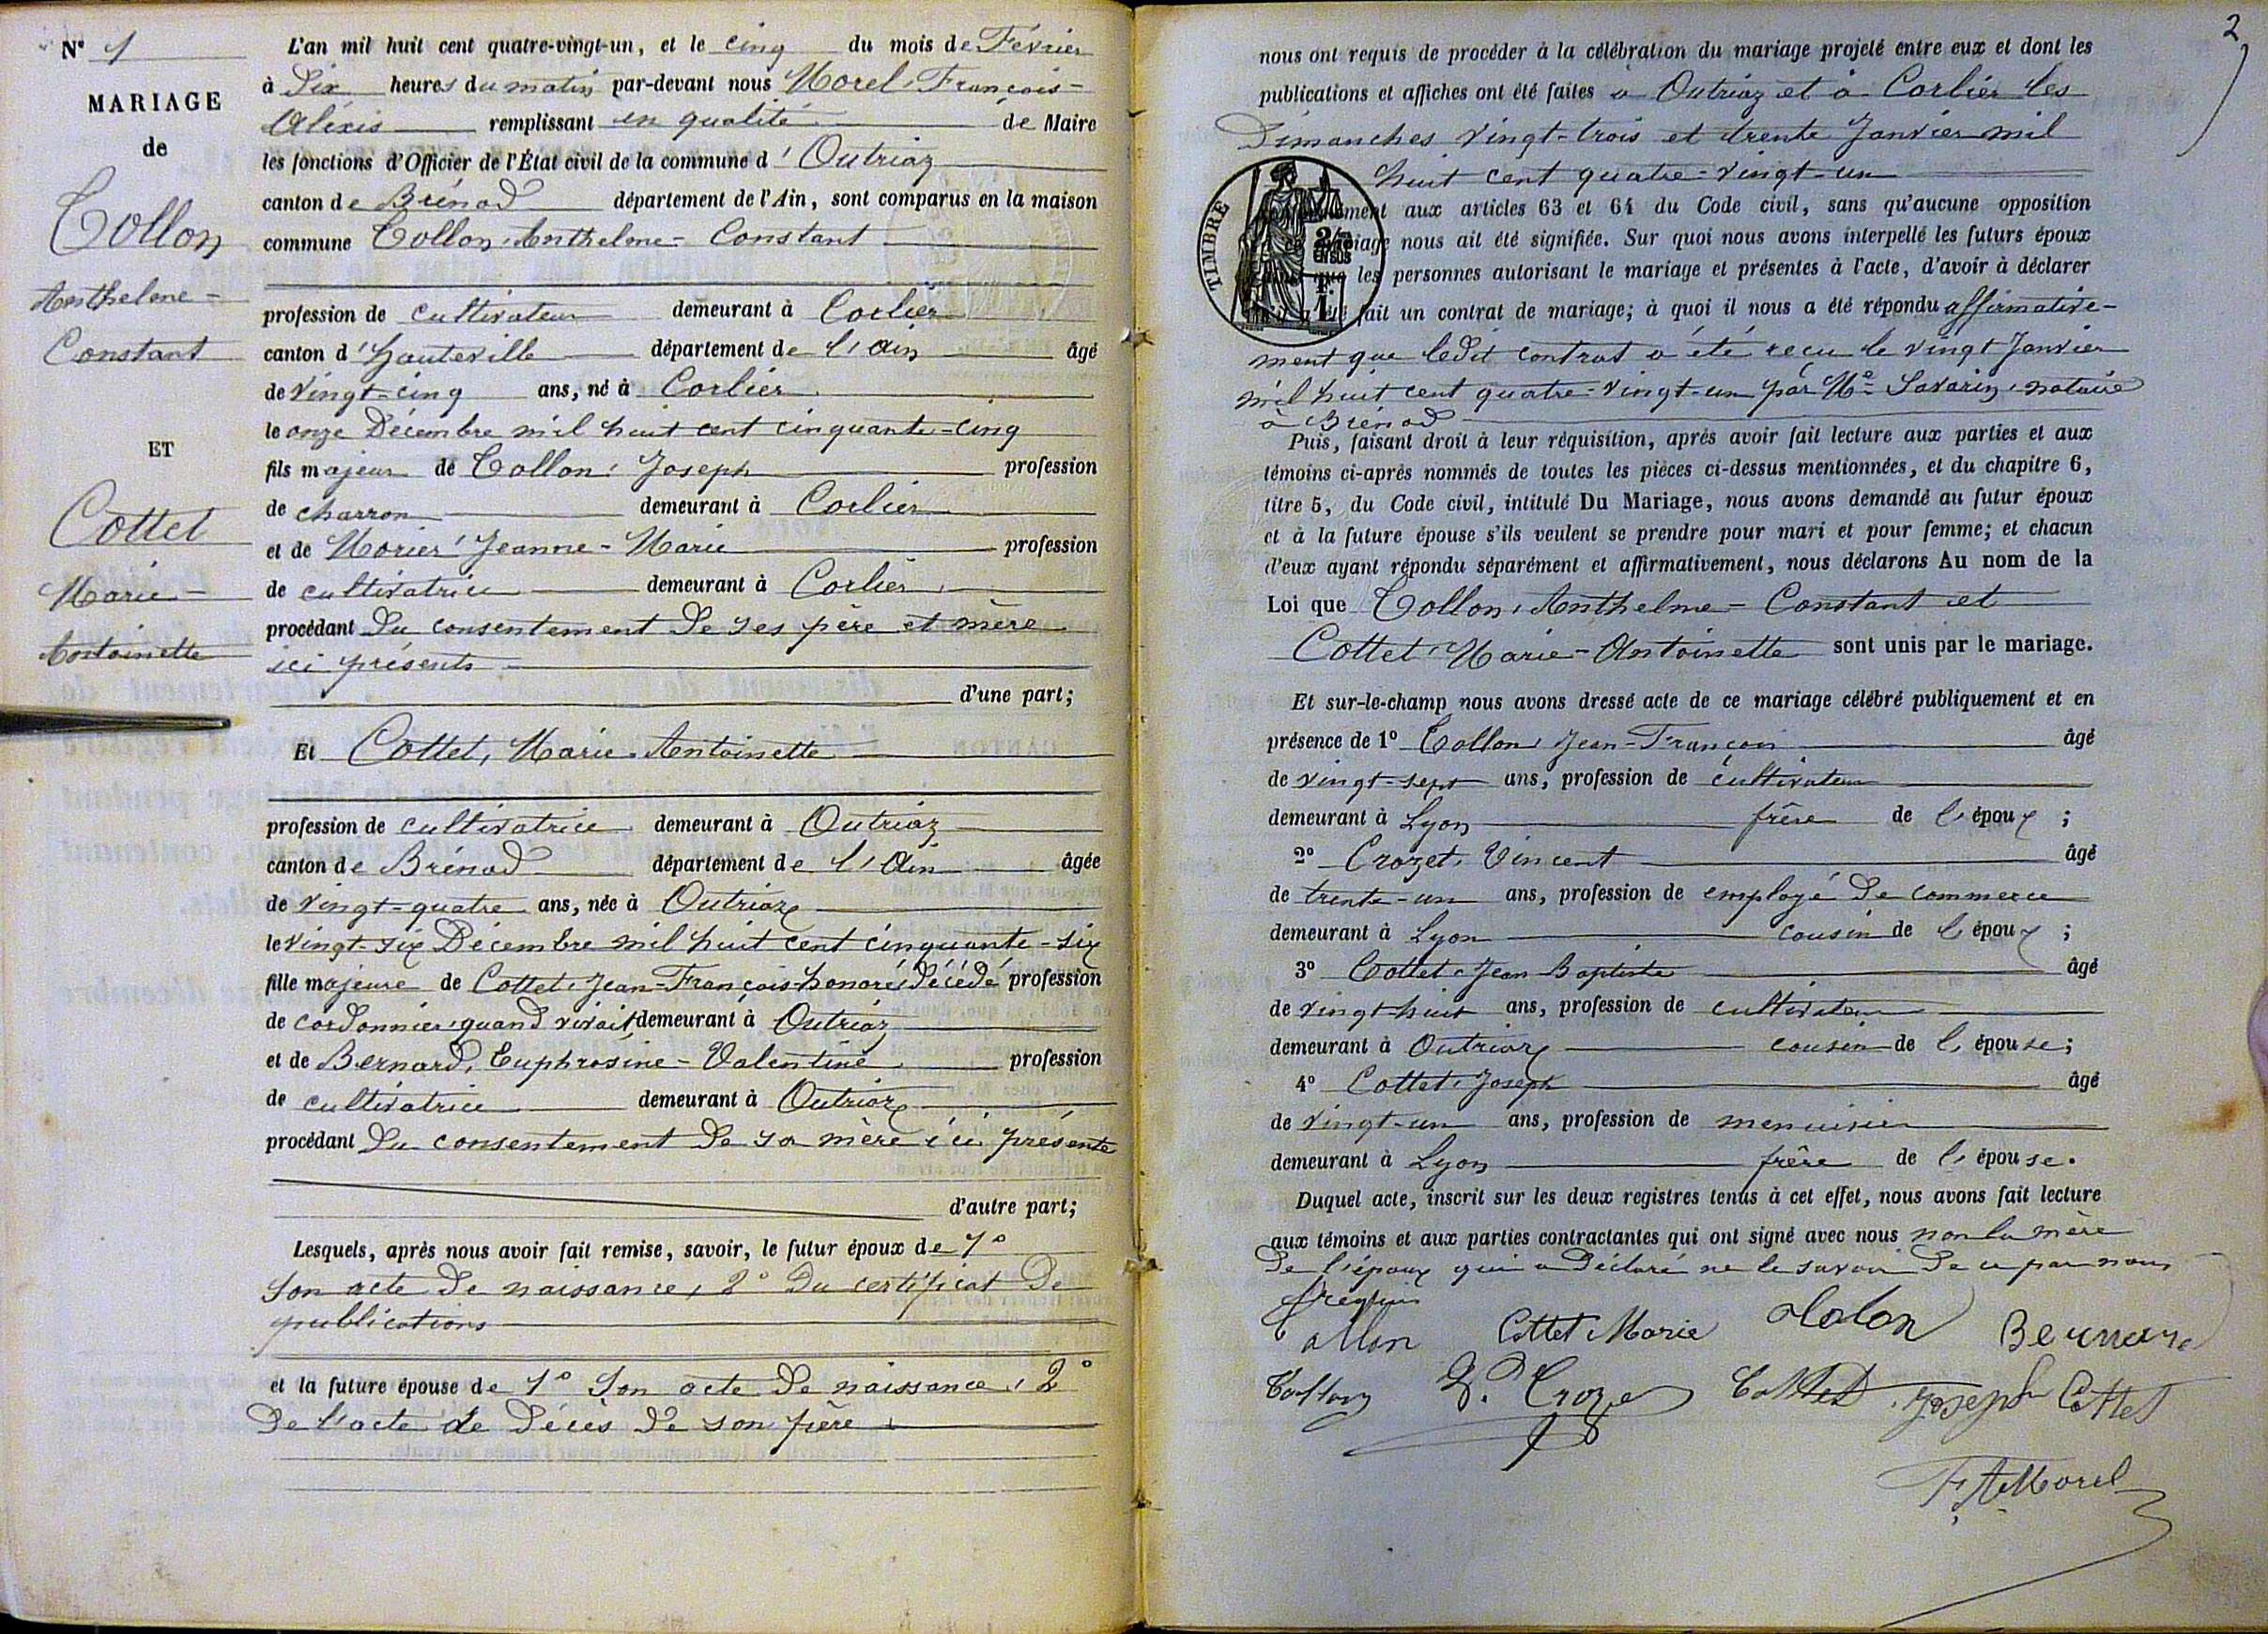 N° 1
MARIAGE
de
Collon
Anthelme-
Constant
ET
Cottet
Marie-
Antoinette
L'an mil huit cent quatre-vingt-un, et le cinq du mois de Février
à Dix heures du matin par-devant nous Morel, François-
Aléxis remplissant en qualité de Maire
les fonctions d'Officier de l'État civil de la commune d'Outriaz
canton de Brénod département de l'Ain, sont comparus en la maison
commune Collon, Anthelme-Constant
profession de cultivateur demeurant à Corlier
canton d'hauteville département de l'Ain âgé
de Vingt-cinq ans, né à Corlier
le onze Décembre mil huit cent cinquante-cinq
fils majeur de Collon, Joseph profession
de charron demeurant à Corlier
et de Morier Jeanne-Marie profession
de cultivatrice demeurant à Corlier
procédant Du consentement De ses père et mère
ici présents
d'une part;
Et Cottet, Marie Antoinette
profession de cultivatrice demeurant à Outriaz
canton de Brénod département de l'Ain âgée
de Vingt-quatre ans, née à Outriaz
le vingt-six Décembre mil huit cent cinquante-six
fille majeure de Cottet, Jean-François-honoré, Décédé profession
de cordonnier, quand vivait demeurant à Outriaz
et de Bernard, Euphrosine-Valentine profession
de cultivatrice demeurant à Outriaz
procédant Du consentement De sa mère ici présente
d'autre part;
Lesquels, après nous avoir fait remise, savoir, le futur époux de 1°
Son acte De naissance, 2° Du certificat De
publications
et la future épouse de 1° Son acte De naissance, 2°
De l'acte de Décès De son père
2
nous ont requis de procéder à la célébration du mariage projeté entre eux et dont les
publications et affiches ont été faites à Outriaz et à Corlier les
Dimanches vingt-trois et trente Janvier mil
huit cent quatre-vingt-un
TIMBRE
aux articles 63 et 64 du Code civil, sans qu'aucune opposition
mariage nous ait été signifiée. Sur quoi nous avons interpellé les futurs époux
que les personnes autorisant le mariage et présentes à l'acte, d'avoir à déclarer
été fait un contrat de mariage; à quoi il nous a été répondu affirmative-
ment que ledit contrat a été reçu le vingt Janvier
mil huit cent quatre-vingt-un par Me Savarin, notaire
à Brénod
Puis, faisant droit à leur réquisition, après avoir fait lecture aux parties et aux
témoins ci-après nommés de toutes les pièces ci-dessus mentionnées, et du chapitre 6,
titre 5, du Code civil, intitulé Du Mariage, nous avons demandé au futur époux
et à la future épouse s'ils veulent se prendre pour mari et pour femme; et chacun
d'eux ayant répondu séparément et affirmativement, nous déclarons Au nom de la
Loi que Collon, Anthelme-Constant et
Cottet, Marie-Antoinette sont unis par le mariage.
Et sur-le-champ nous avons dressé acte de ce mariage célébré publiquement et en
présence de 1° Collon, Jean-François âgé
de vingt-sept ans, profession de cultivateur
demeurant à Lyon frère de l'époux;
2° Crozet, Vincent âgé
de trente-un ans, profession de employé De commerce
demeurant à Lyon cousin de l'époux;
3° Cottet, Jean Baptiste âgé
de vingt-huit ans, profession de cultivateur
demeurant à Outriaz cousin de l'épouse;
4° Cottet, Joseph âgé
de vingt-un ans, profession de menuisier
demeurant à Lyon frère de l'épouse.
Duquel acte, inscrit sur les deux registres tenus à cet effet, nous avons fait lecture
aux témoins et aux parties contractantes qui ont signé avec nous non la mère
De l'époux qui a Déclaré ne le savoir De ce par nous
requis
Collon Cottet Marie Colon Bernard
Collon Crozet Cottet Joseph Cottet
F. A Morel